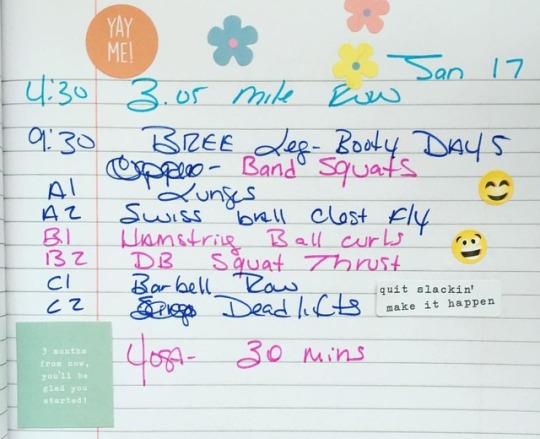 YAY
ME!
Jan 17
4:30 3.05 mile Row
9:30 BREE Leg-Booty DAY 5
- Band Squats
A1 Lunges
A2 Swiss ball Chest Fly
B1 Hamstring Ball curls
B2 DB Squat Thrust
C1 Barbell Row
C2 Deadlifts
quit slackin'
make it happen
Yoga- 30 mins
3 months
from now,
you'll be
glad you
started!